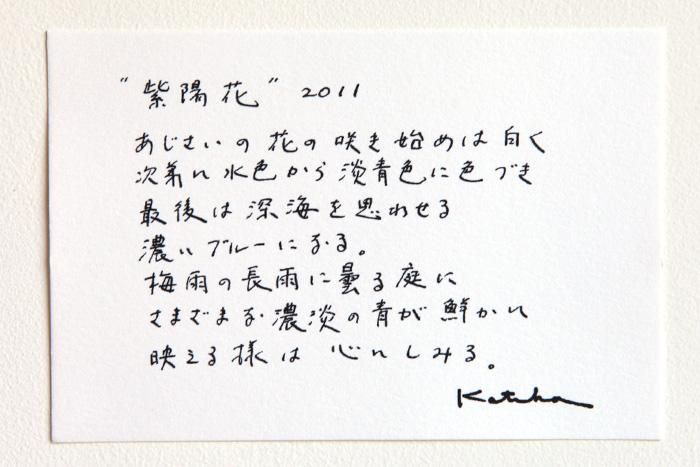 "紫陽花" 2011
あじさいの花の咲き始めは白く
次第に水色から淡青色に色づき
最後は深海を思わせる
濃いブルーになる。
梅雨の長雨に曇る庭に
さまざまな濃淡の青が鮮かに
映える様は心にしみる。